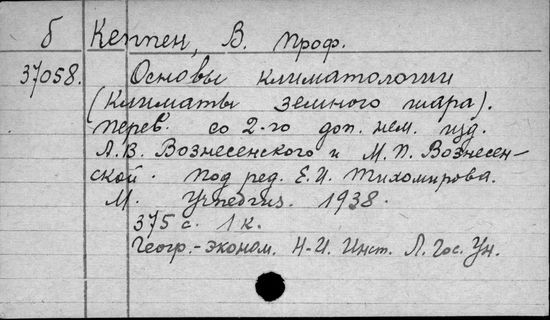 б Кеппен, В. проф.
37058. Основы климатологии
(Климаты земного шара).
Перев. со 2-го доп. нем. изд.
А.В. Вознесенского и М.П. Вознесен-
ской. Под ред. Е.И. Тихомирова.
М. Учпедгиз. 1938.
375 с. 1 к.
Геогр.-эконом. Н-И. Инст. Л. Гос. Ун.